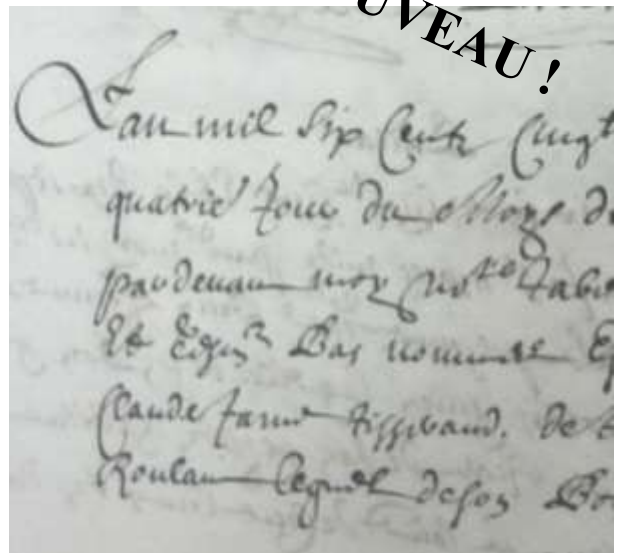 UVEAU !
Lan mil Six Centz Cinqt
quatrie Jour du Moys d
pardevant moy no.re Tab
Et tesm bas nommes E
Claude Jame Tisserand. de
Roulan lequel de son Bo